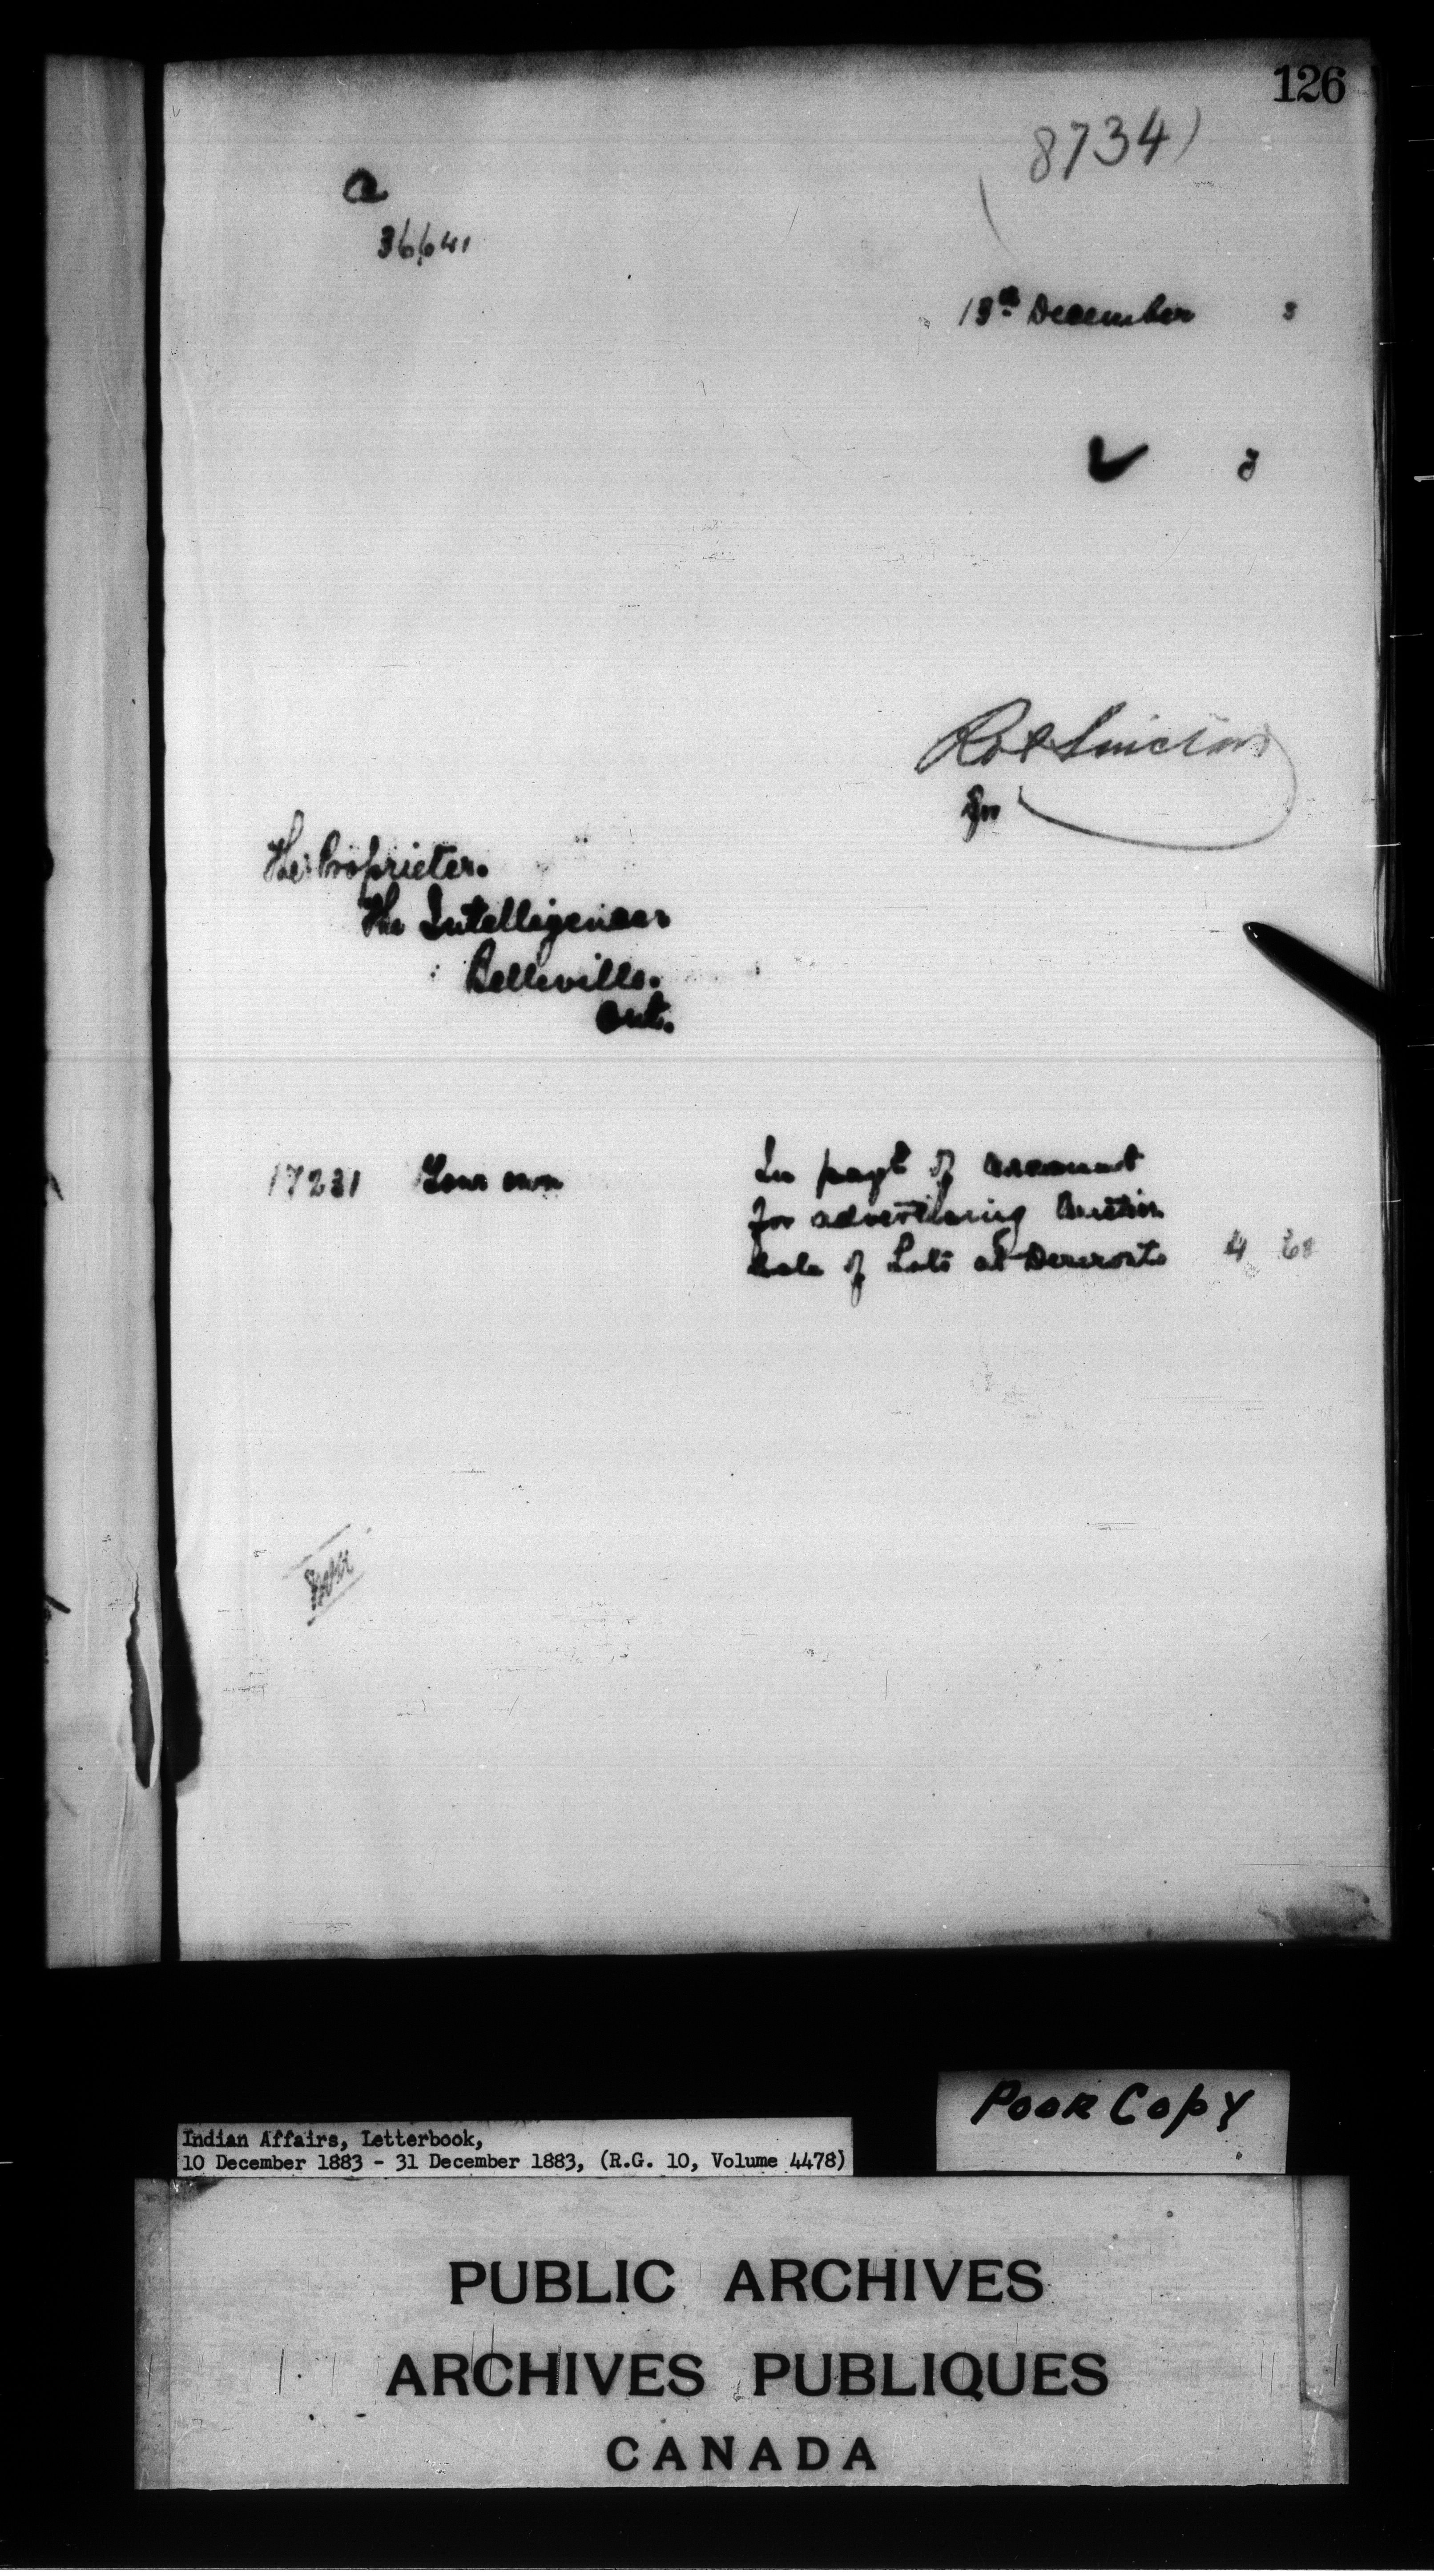 126
8734)
a
36641
13th December 3
3
Robt Sinclair
for
The Proprietor.
The Intelligencer
Belleville.
Ont.
17231 Your own In payt of account
for advertising Auction
Sale of Lots at Deseronto 4 68
Indian Affairs, Letterbook,
10 December 1883 - 31 December 1883, (R.G. 10, Volume 4478)
Poor Copy
PUBLIC ARCHIVES
ARCHIVES PUBLIQUES
CANADA